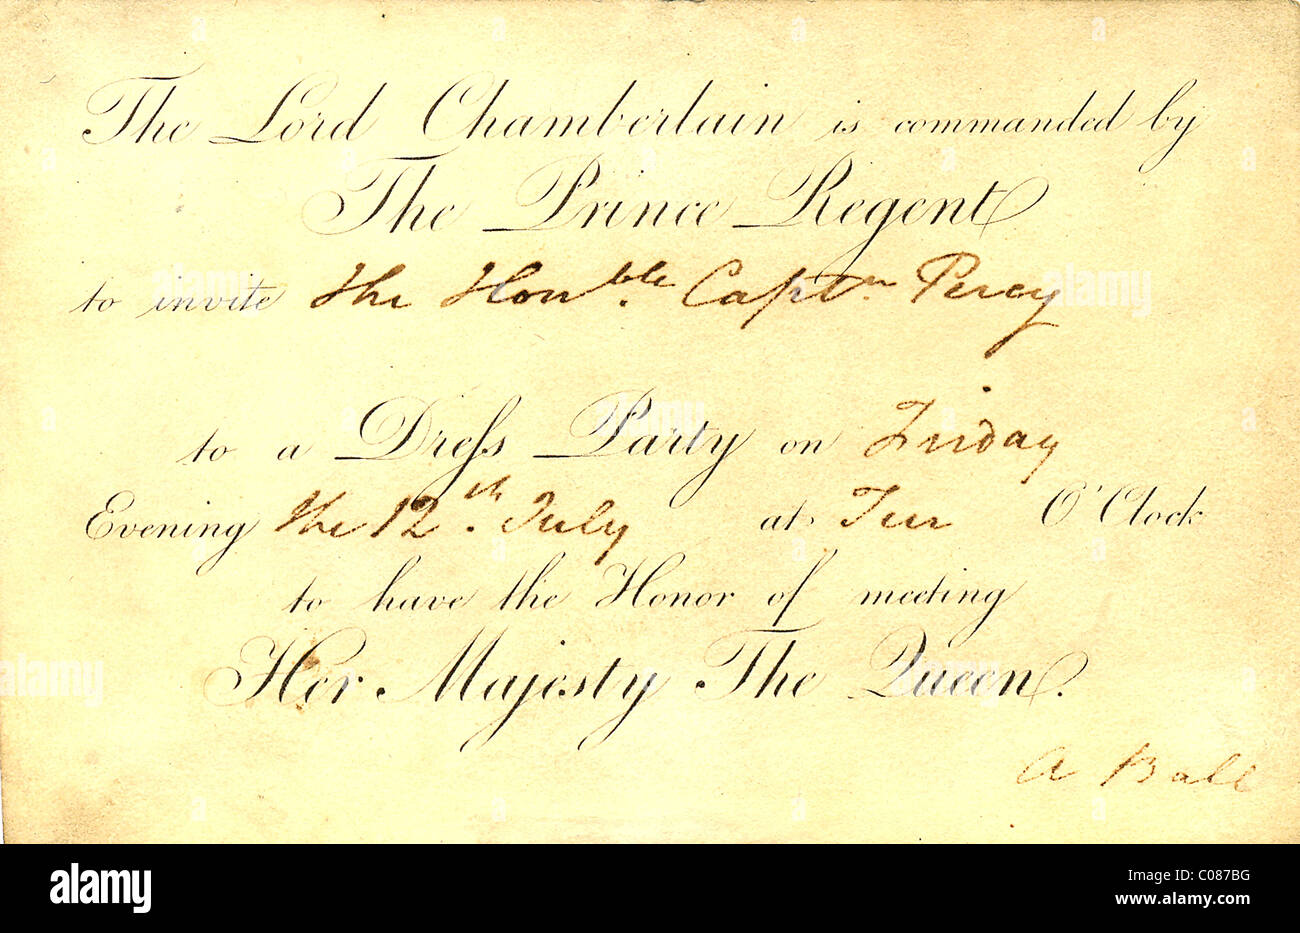 The Lord Chamberlain is commanded by
The Prince Regent
to invite The Honble. Captn Percy
to a Dreſs Party on Friday
Evening the 12th. July at Ten O'Clock
to have the Honor of meeting
Her Majesty The Queen.
A Ball
alamy
Image ID: C087BG
www.alamy.com